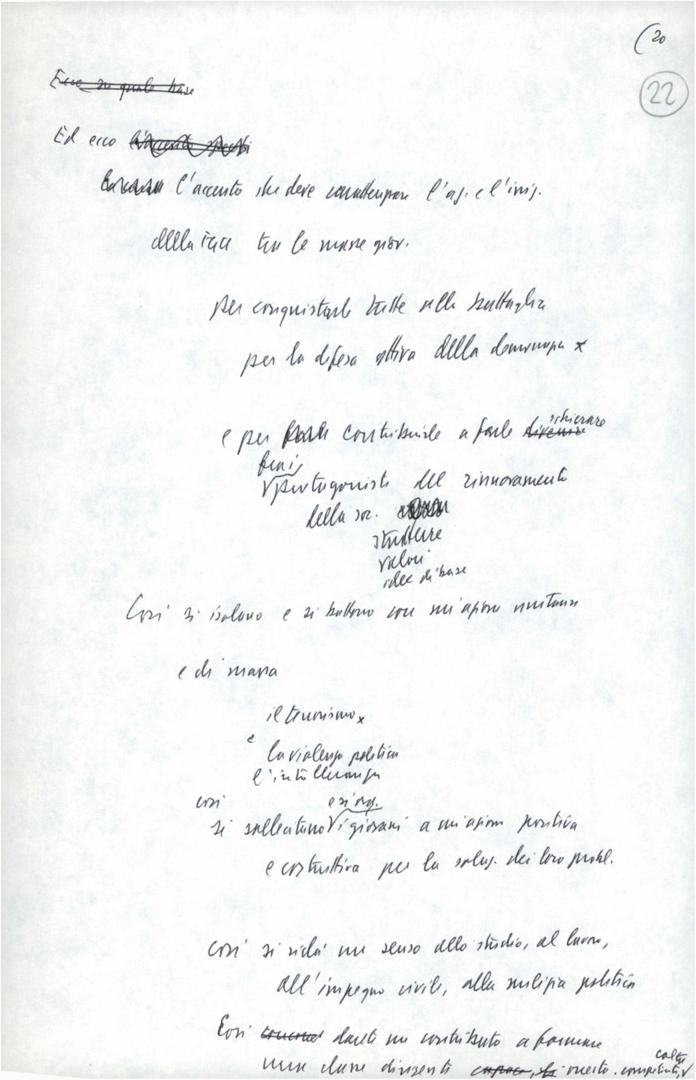 (20
22
Ecco su quale base
Ed ecco
l'accento che deve caratterizzare l'az. e l'iniz.
della FGCI tra le masse giov.
per conquistarle tutte alla battaglia
per la difesa attiva della democrazia x
e per contribuire a farle divenire schierare
protagoniste del rinnovamento
della soc.
strutture
valori
idee di base
Così si isolano e si battono con un'azione unitaria
e di massa
il terrorismo x
e la violenza politica
e l'intolleranza
così e si org.
si sollecitano i giovani a un'azione positiva
e costruttiva per la soluz. dei loro probl.
Così si ridà un senso allo studio, al lavoro,
all'impegno civile, alla milizia politica
Così darete un contributo a formare
una classe dirigente capace, onesta, competente, colta